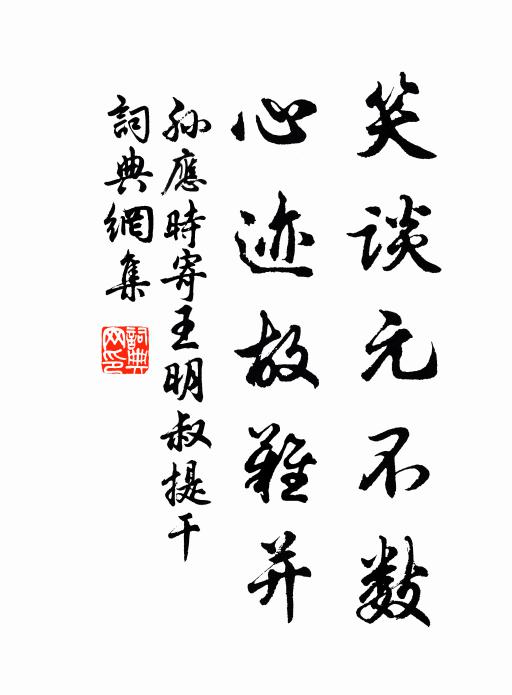 笑談元不數
心迹故難并
孫應時寄王明叔提干
詞典網集
詞典網印